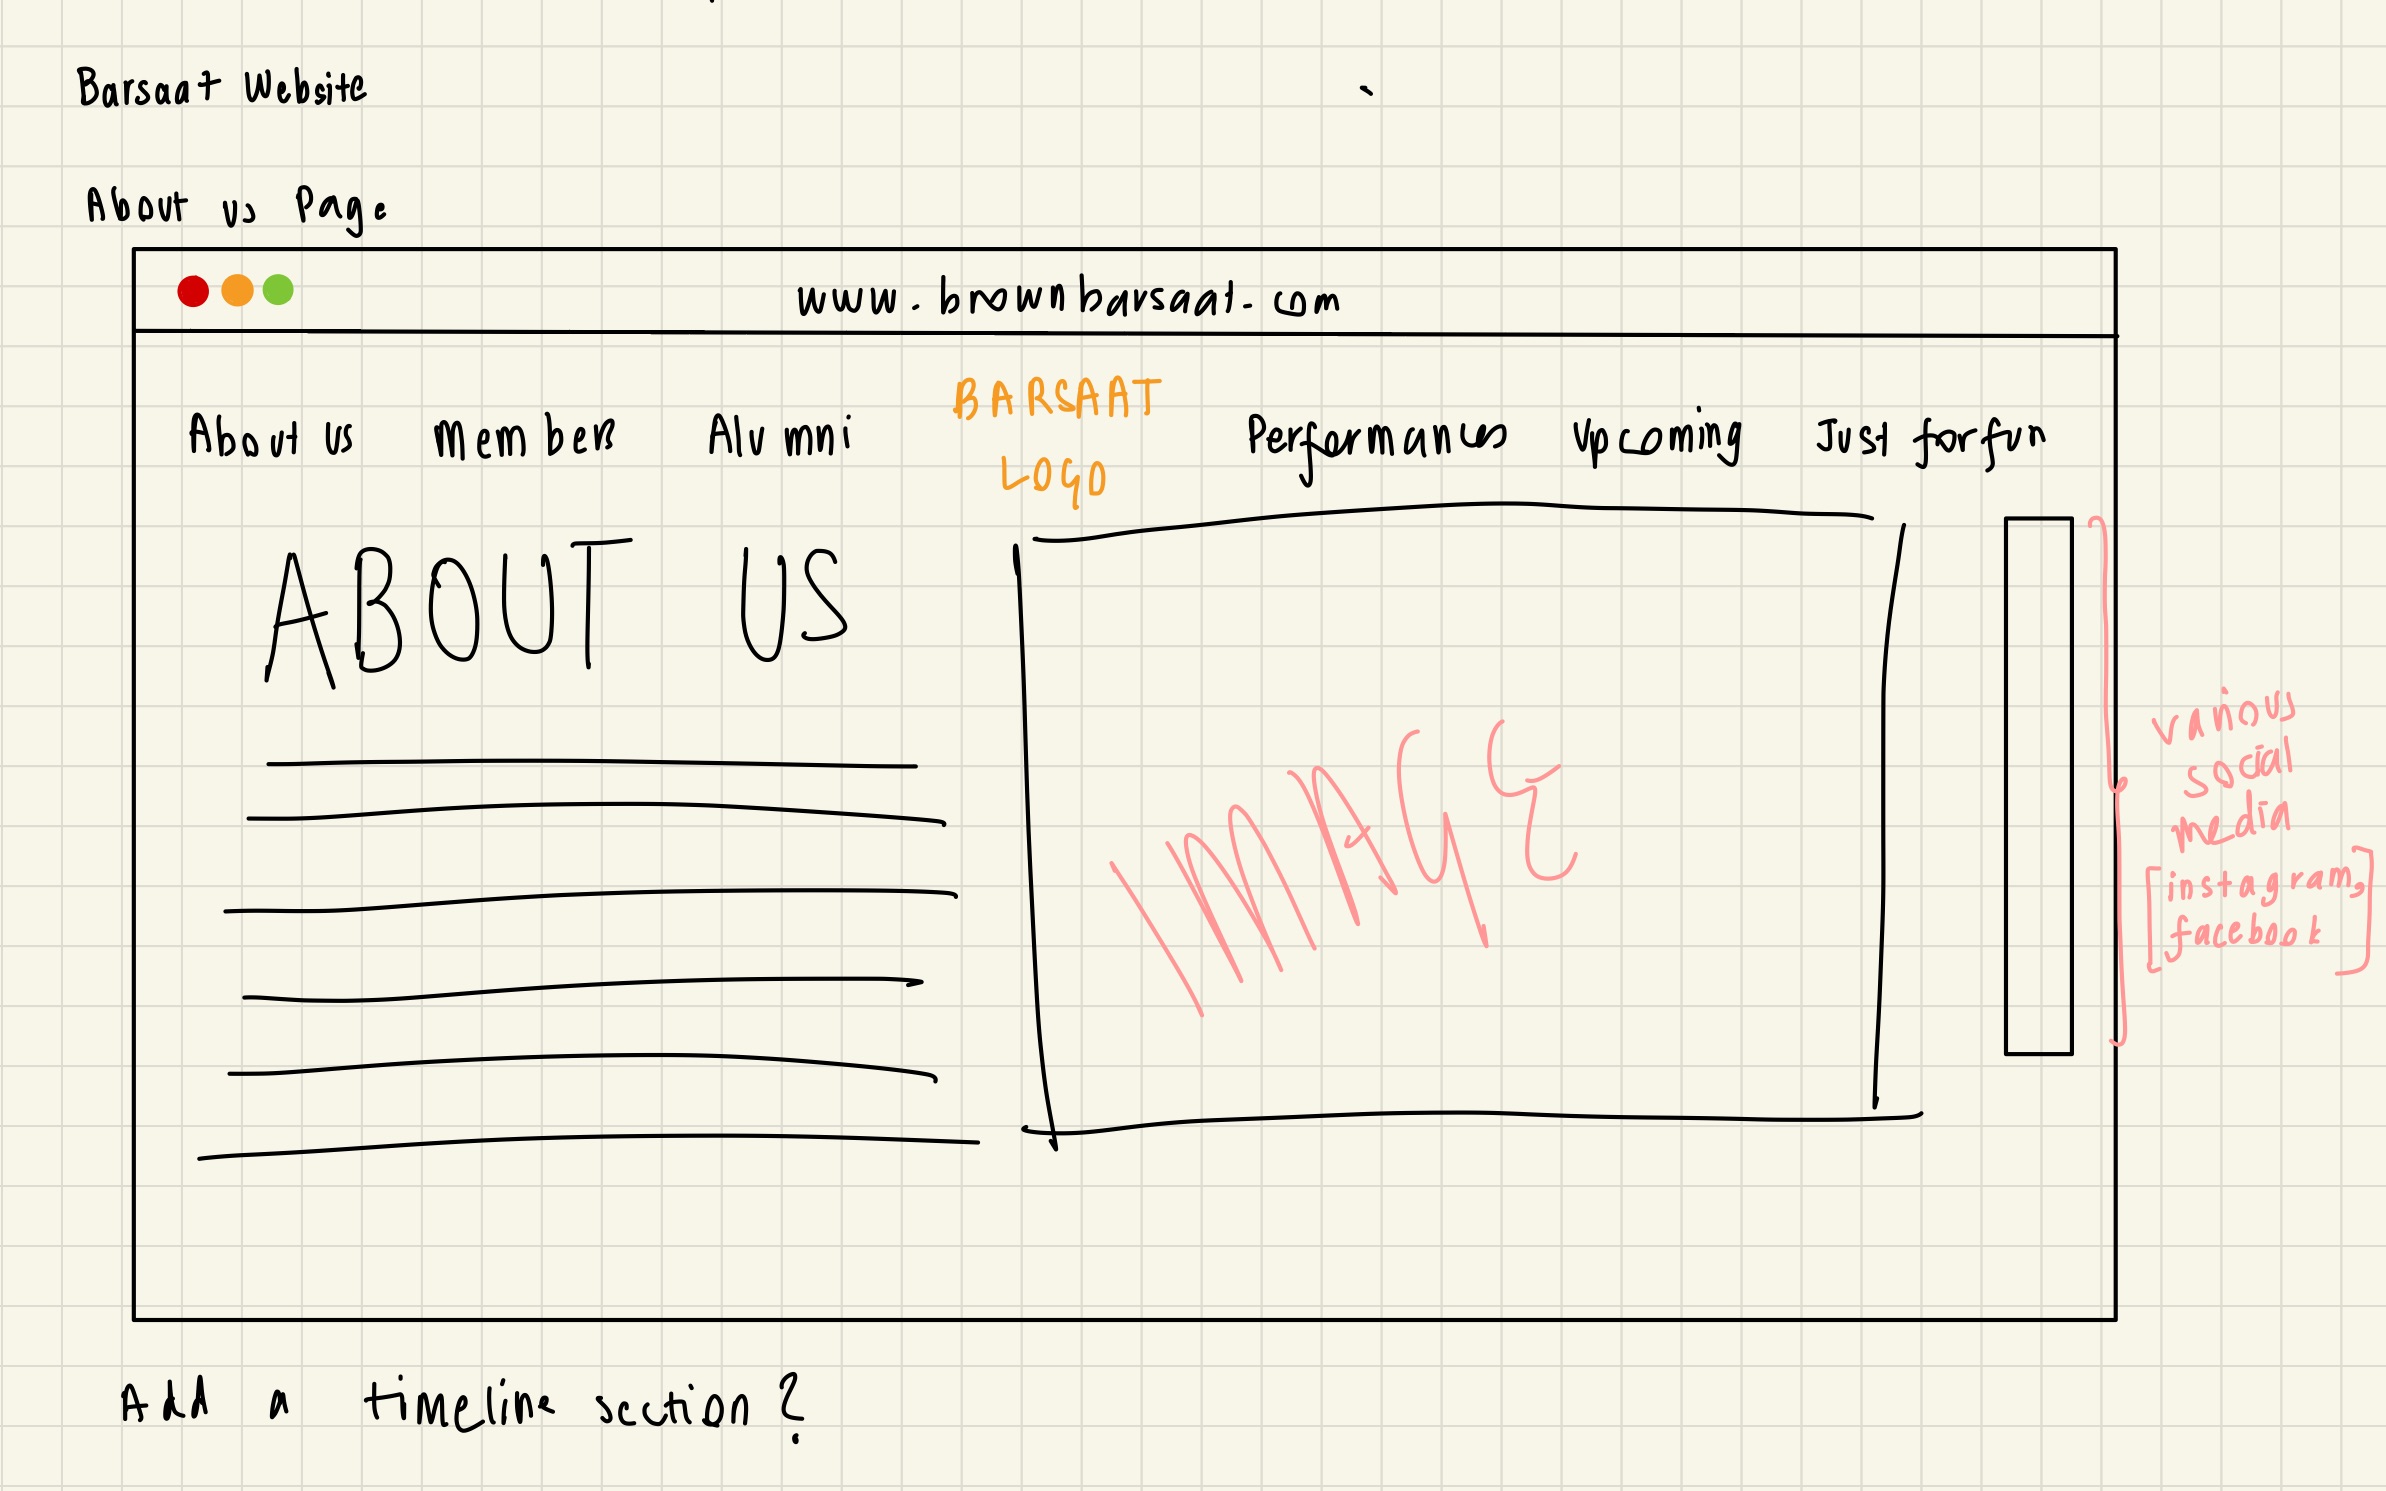 Barsaat Website
About us Page
www.brownbarsaat.com
About us Members Alumni BARSAAT LOGO Performances Upcoming Just for fun
ABOUT US
IMAGE
various
social
media
[instagram,
facebook]
Add a timeline section?